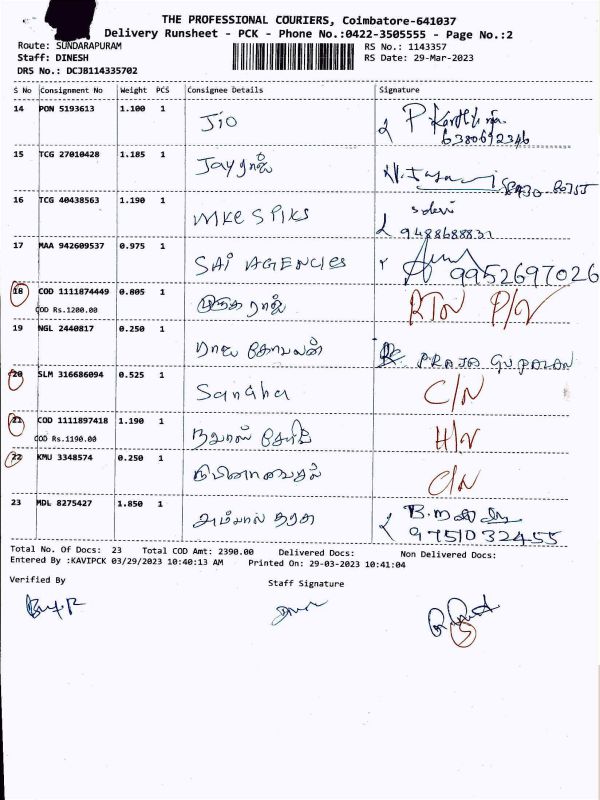 THE PROFESSIONAL COURIERS, Coimbatore-641037
Delivery Runsheet - PCK - Phone No.:0422-3505555 - Page No.:2
Route: SUNDARAPURAM
RS No.: 1143357
Staff: DINESH
RS Date: 29-Mar-2023
DRS No.: DCJB114335702
S No Consignment No Weight PCS Consignee Details Signature
14 PON 5193613 1.100 1 Jio
6380692346
15 TCG 27010428 1.185 1 Jayராஜ்
16 TCG 40438563 1.190 1 MKE SPIKS
9488688831
17 MAA 942609537 0.975 1 SAI AGENCIES 9952697026
18 COD 1111874449 0.805 1 RTN P/V
COD Rs.1200.00
19 NGL 2440817 0.250 1 ராஜ கோபாலன்
20 SLM 316686094 0.525 1 C/N
21 COD 1111897418 1.190 1 H/V
COD Rs.1190.00
22 KMU 3348574 0.250 1 C/N
23 MDL 8275427 1.850 1
9751032455
Total No. Of Docs: 23 Total COD Amt: 2390.00 Delivered Docs: Non Delivered Docs:
Entered By :KAVIPCK 03/29/2023 10:40:13 AM Printed On: 29-03-2023 10:41:04
Verified By Staff Signature
5